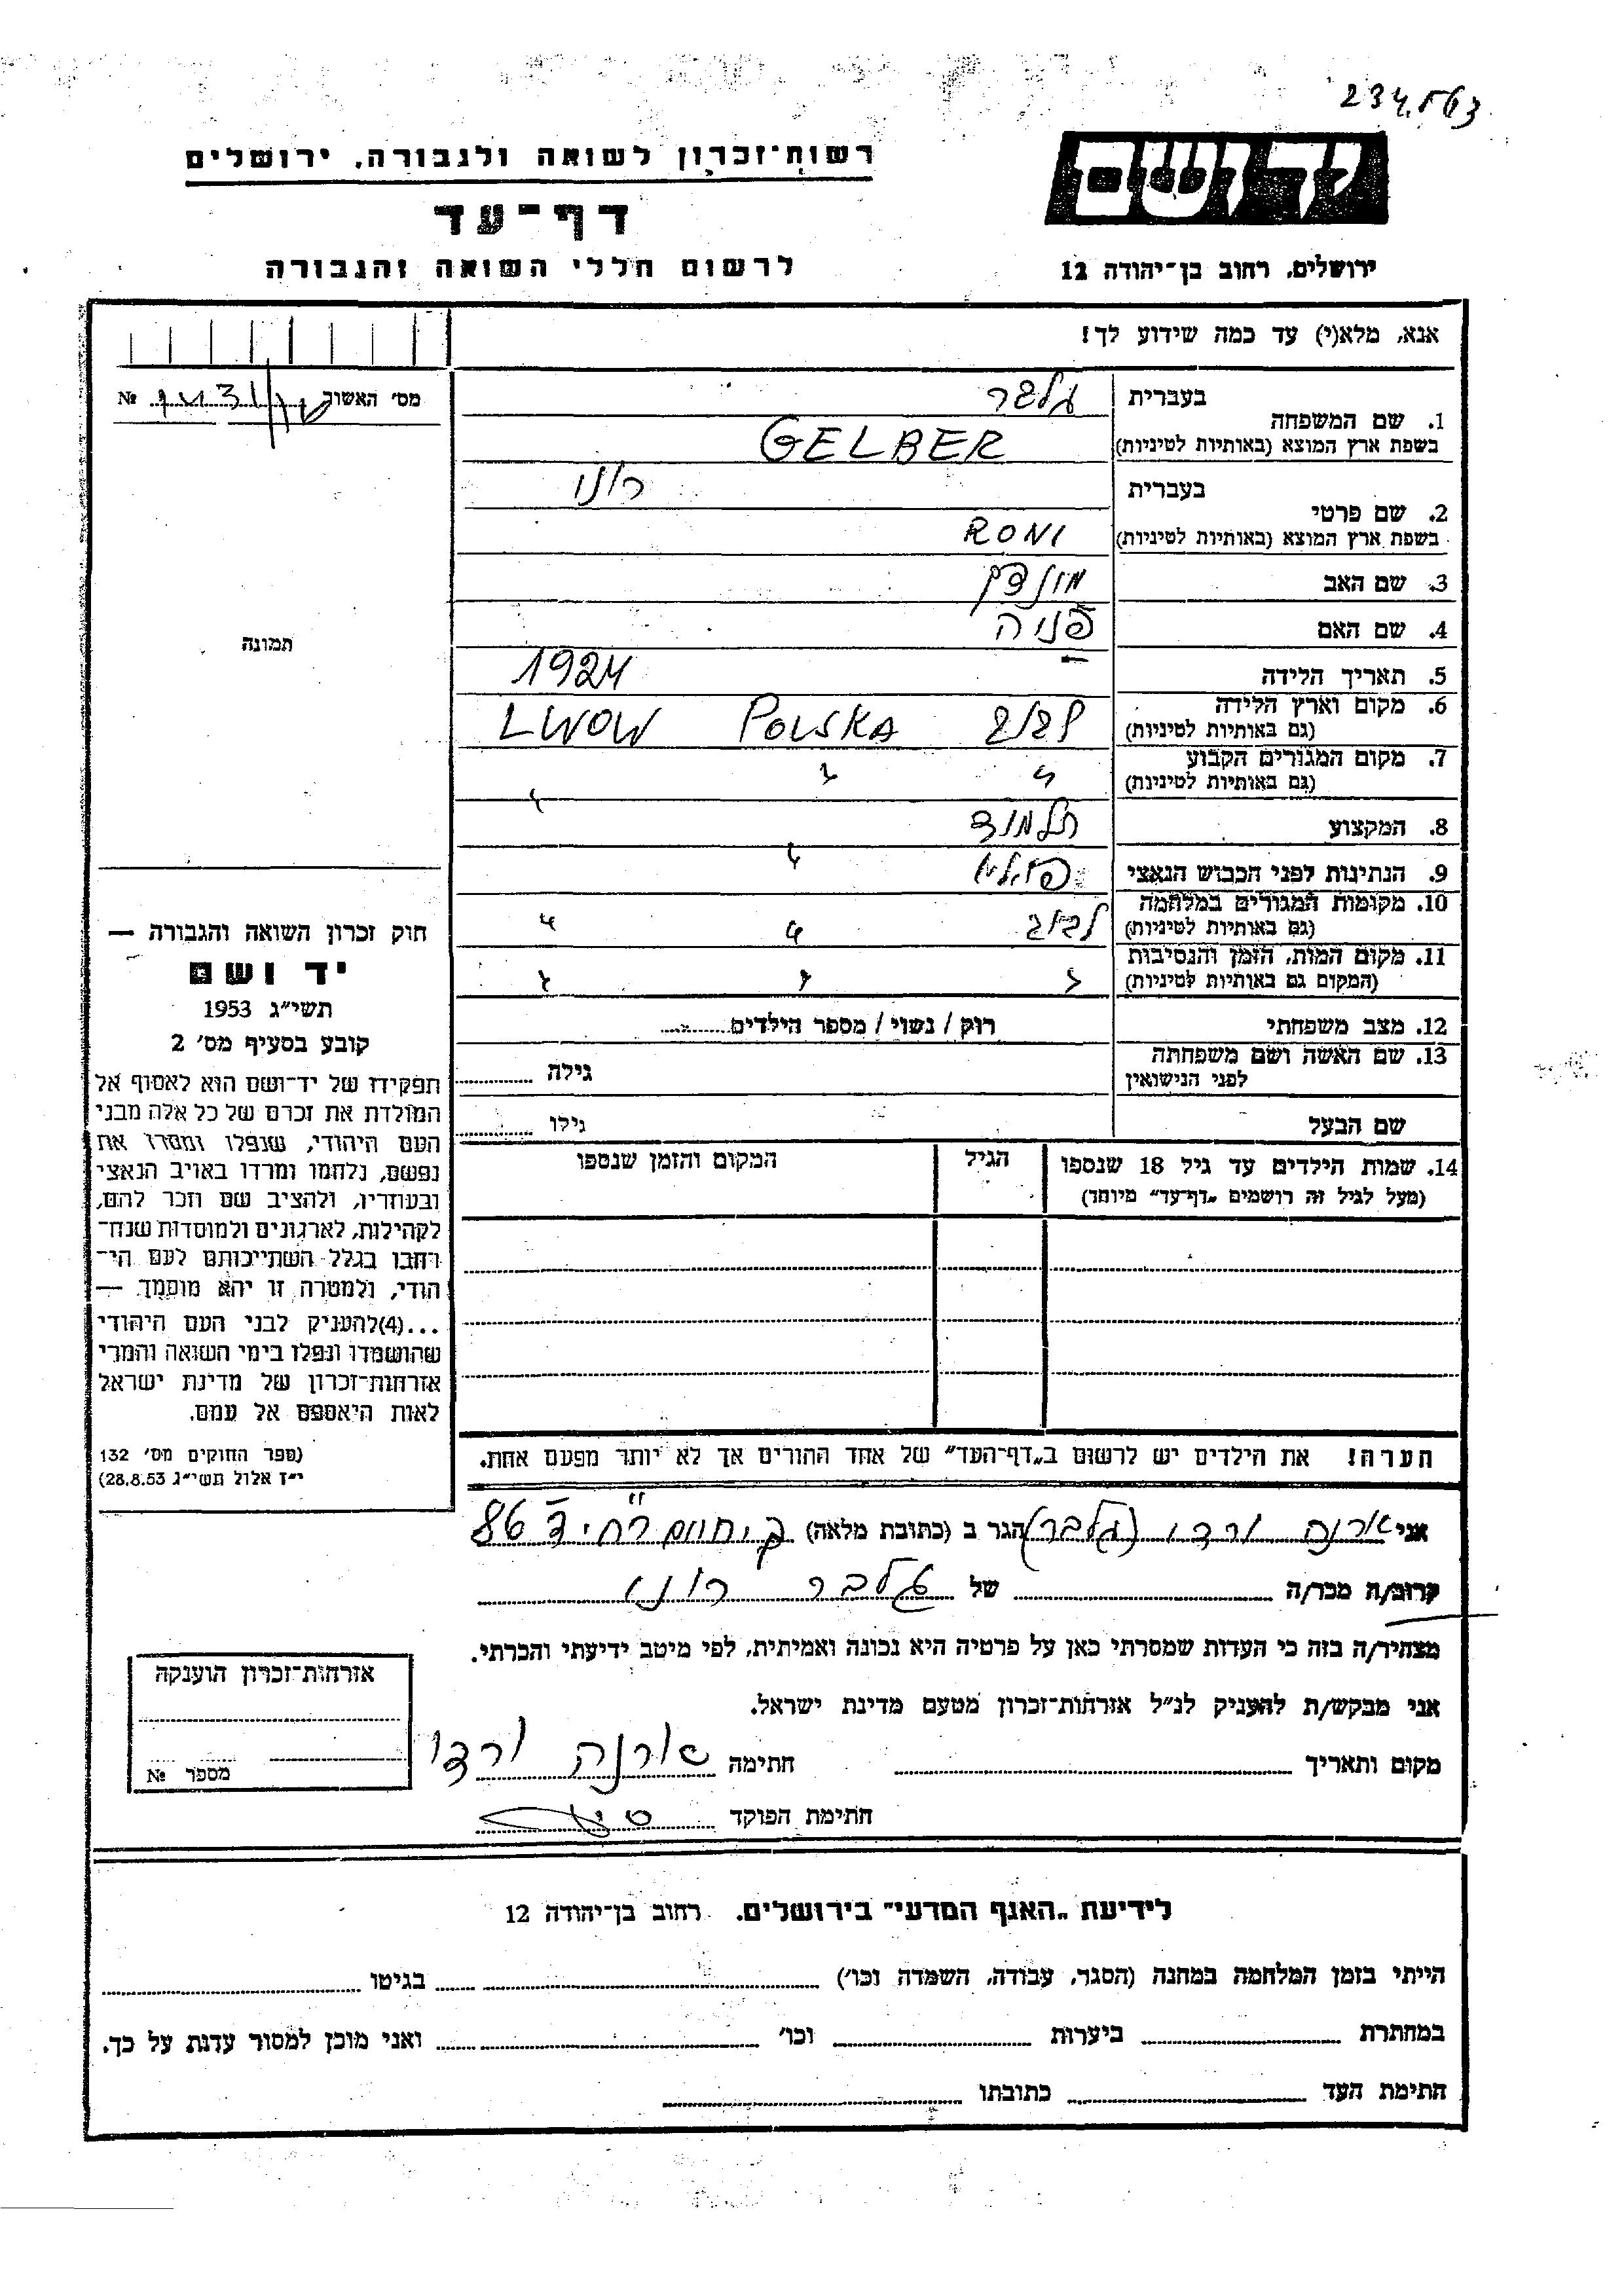 234563
יד ושם
רשות־זכרון לשואה ולגבורה, ירושלים
דף־עד
לרשום חללי השואה והגבורה
ירושלים, רחוב בן־יהודה 12
אנא, מלא(י) עד כמה שידוע לך!
מס׳ האשור №
1. שם המשפחה
בעברית גלבר
בשפת ארץ המוצא (באותיות לטיניות) GELBER
2. שם פרטי
בעברית רוני
בשפת ארץ המוצא (באותיות לטיניות) RONI
3. שם האב
4. שם האם פניה
5. תאריך הלידה 1924
6. מקום וארץ הלידה LWOW POLSKA
(גם באותיות לטיניות)
7. מקום המגורים הקבוע
(גם באותיות לטיניות)
8. המקצוע תלמיד
9. הנתינות לפני הכבוש הנאצי
10. מקומות המגורים במלחמה לבוב
(גם באותיות לטיניות)
11. מקום המות, הזמן והנסיבות
(המקום גם באותיות לטיניות)
12. מצב משפחתי רוק / נשוי / מספר הילדים
13. שם האשה ושם משפחתה
לפני הנישואין גילה
שם הבעל גילו
14. שמות הילדים עד גיל 18 שנספו הגיל המקום והזמן שנספו
(מעל לגיל זה רושמים „דף־עד״ מיוחד)
הערה! את הילדים יש לרשום ב„דף־העד״ של אחד ההורים אך לא יותר מפעם אחת.
תמונה
חוק זכרון השואה והגבורה —
יד ושם
תשי״ג 1953
קובע בסעיף מס׳ 2
תפקידו של יד־ושם הוא לאסוף אל
המולדת את זכרם של כל אלה מבני
העם היהודי, שנפלו ומסרו את
נפשם, נלחמו ומרדו באויב הנאצי
ובעוזריו, ולהציב שם וזכר להם,
לקהילות, לארגונים ולמוסדות שנח־
רבו בגלל השתייכותם לעם הי־
הודי, ולמטרה זו יהא מוסמך —
...(4)להעניק לבני העם היהודי
שהושמדו ונפלו בימי השואה והמרי
אזרחות־זכרון של מדינת ישראל
לאות היאספם אל עמם.
(ספר החוקים מס׳ 132
י״ז אלול תשי״ג 28.8.53)
אני ארנה ורדי (גלבר) הגר ב (כתובת מלאה) 86
קרוב/ה מכר/ה של גלבר רוני
מצהיר/ה בזה כי העדות שמסרתי כאן על פרטיה היא נכונה ואמיתית, לפי מיטב ידיעתי והכרתי.
אני מבקש/ת להעניק לנ״ל אזרחות־זכרון מטעם מדינת ישראל.
מקום ותאריך חתימה ארנה ורדי
חתימת הפוקד
אזרחות־זכרון הוענקה
מספר №
לידיעת „האגף המדעי״ בירושלים. רחוב בן־יהודה 12
הייתי בזמן המלחמה במחנה (הסגר, עבודה, השמדה וכו׳) בגיטו
במחתרת ביערות וכו׳ ואני מוכן למסור עדות על כך.
חתימת העד כתובתו